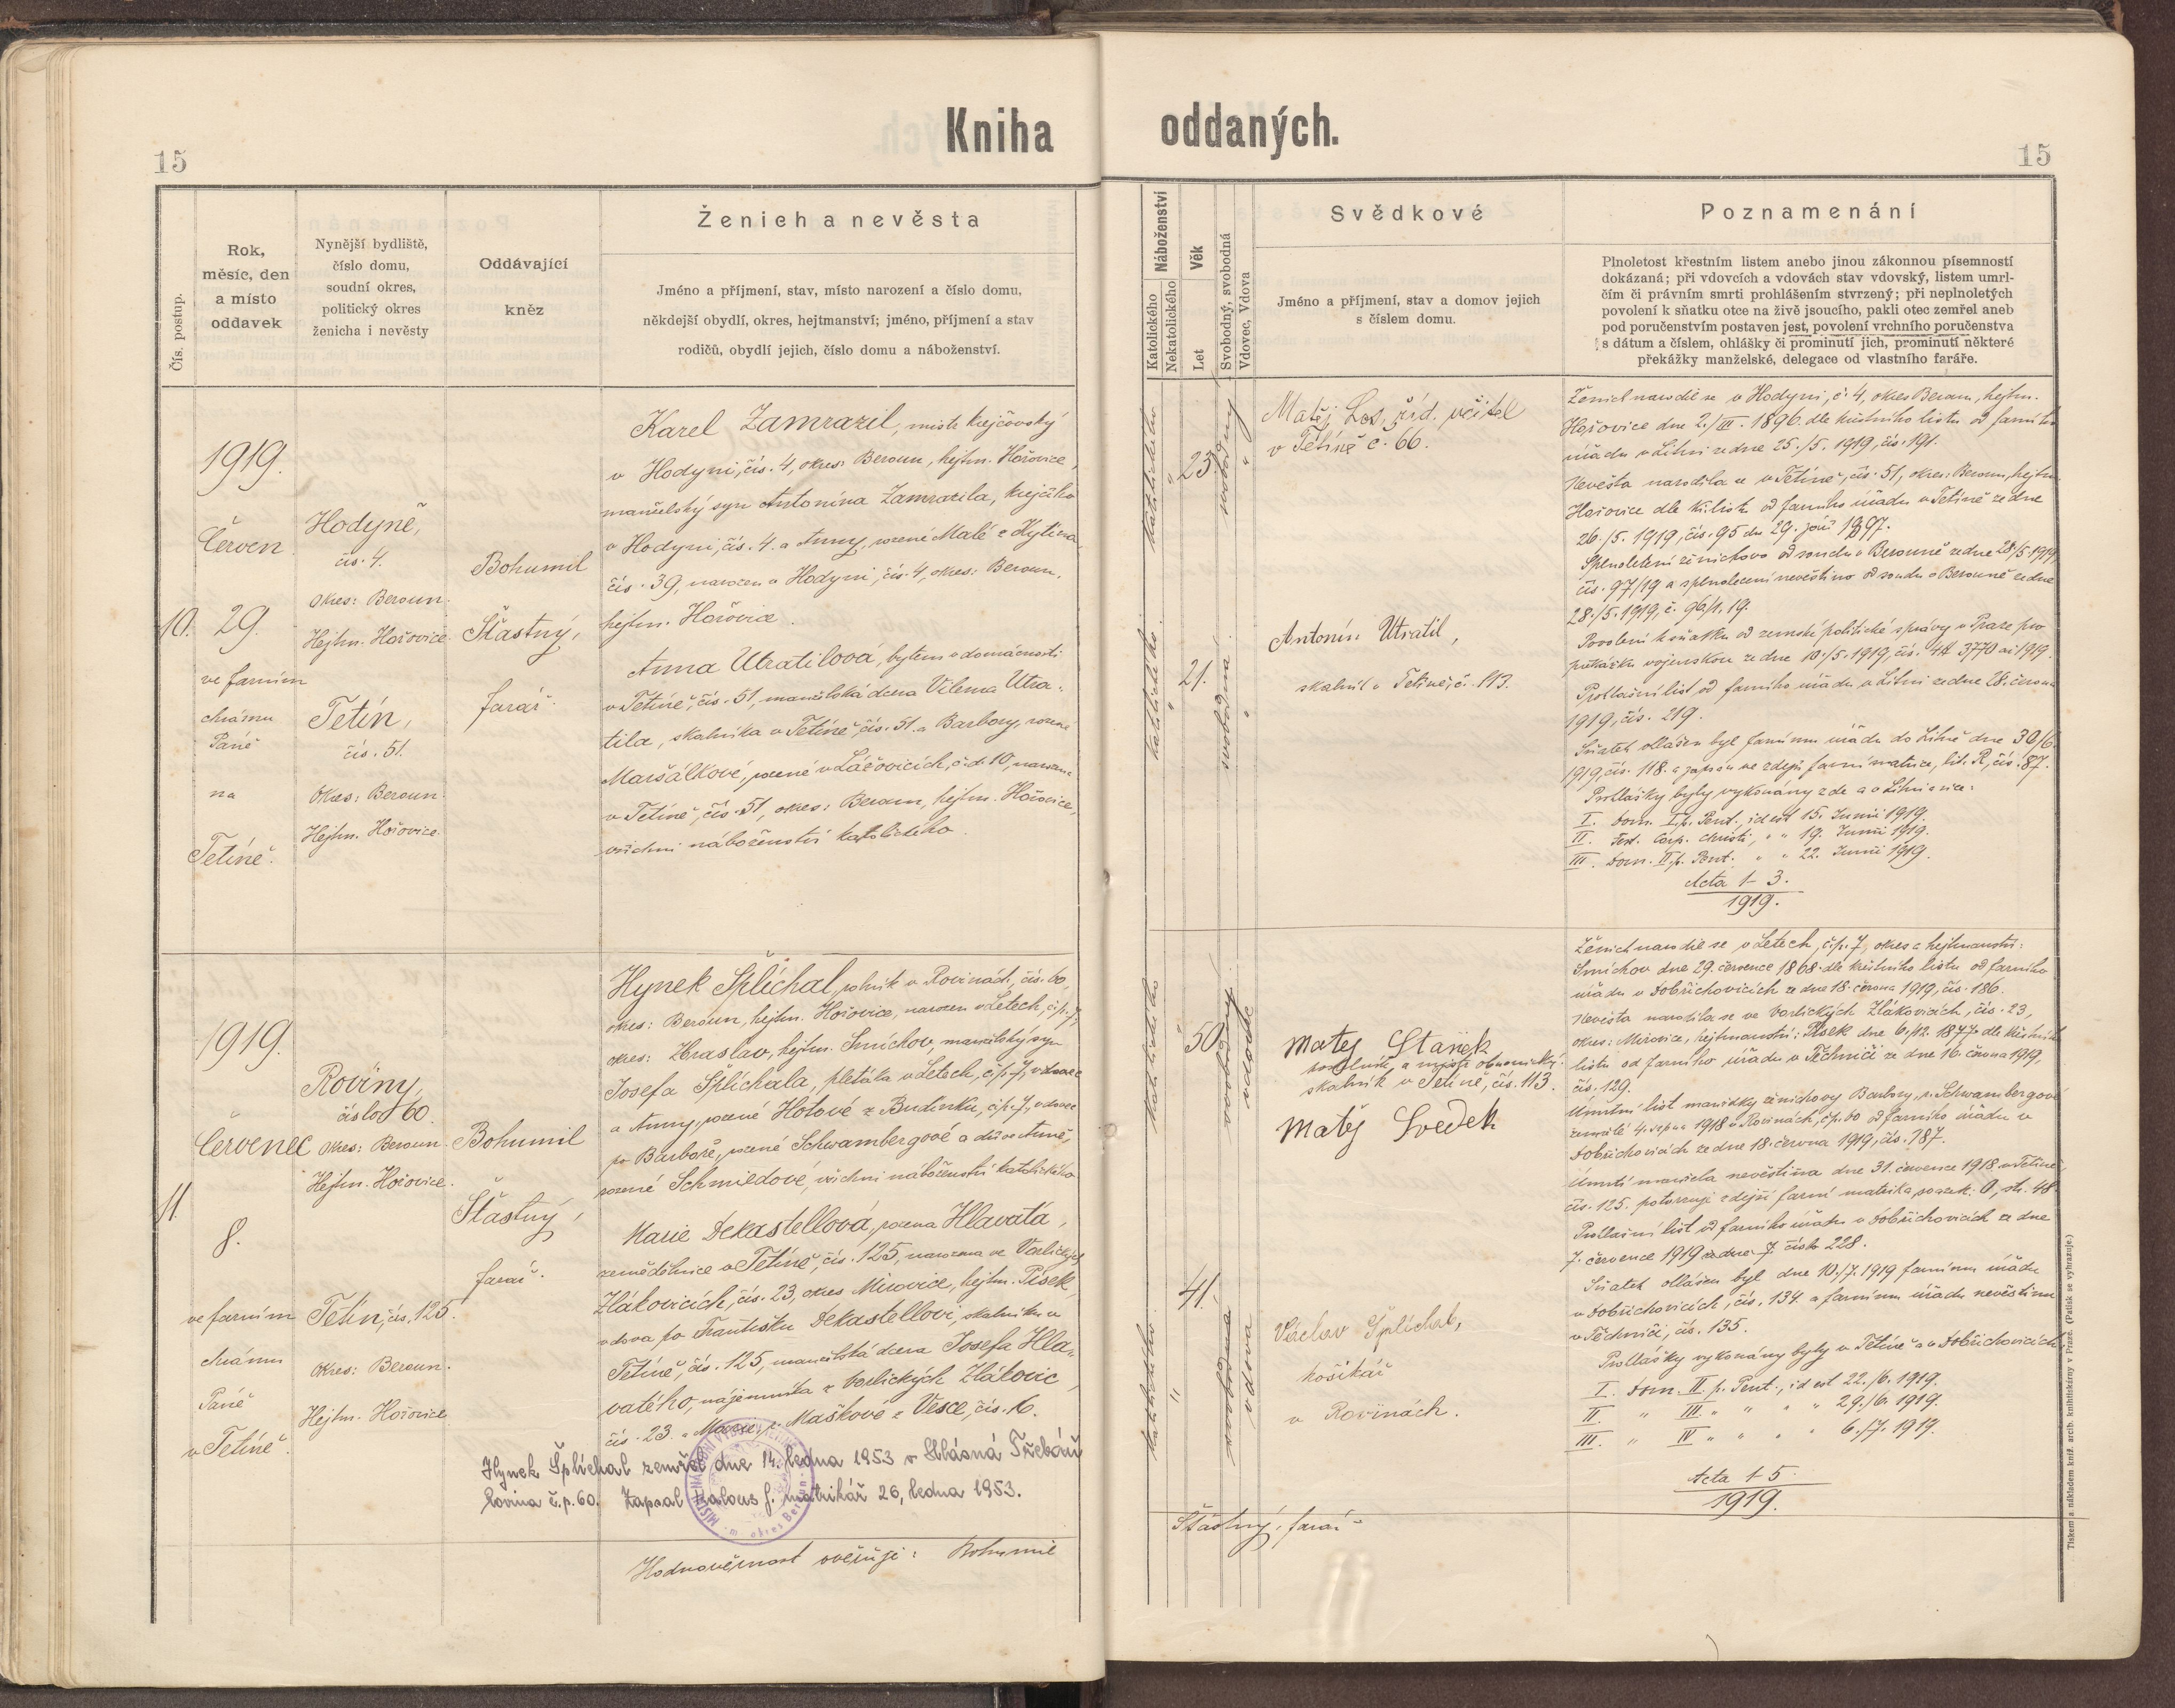 Kniha oddaných.
15
15
Čís. postup.
Rok,
měsíc, den
a místo
oddavek
Nynější bydliště,
číslo domu,
soudní okres,
politický okres
ženicha i nevěsty
Oddávající
kněz
Ženich a nevěsta
Jméno a příjmení, stav, místo narození a číslo domu,
někdejší obydlí, okres, hejtmanství; jméno, příjmení a stav
rodičů, obydlí jejich, číslo domu a náboženství.
Náboženství
Katolického
Nekatolického
Věk
Let
Svobodný, svobodná
Vdovec, Vdova
Svědkové
Jméno a příjmení, stav a domov jejich
s číslem domu.
Poznamenání
Plnoletost křestním listem anebo jinou zákonnou písemností
dokázaná; při vdovcích a vdovách stav vdovský, listem umrl-
čím či právním smrti prohlášením stvrzený; při neplnoletých
povolení k sňatku otce na živě jsoucího, pakli otec zemřel aneb
pod poručenstvím postaven jest, povolení vrchního poručenstva
s dátum a číslem, ohlášky či prominutí jich, prominutí některé
překážky manželské, delegace od vlastního faráře.
10.
1919.
Červen
29.
ve farním
chrámu
Páně
na
Tetíně.
Hodyně,
čís. 4.
Okres: Beroun.
Hejtm. Hořovice.
Tetín,
čís. 51.
Okres: Beroun.
Hejtm. Hořovice.
Bohumil
Šťastný,
farář.
Karel Zamrazil, mistr krejčovský
v Hodyni, čís. 4, okres: Beroun, hejtm. Hořovice,
manželský syn Antonína Zamrazila, krejčího
v Hodyni, čís. 4. a Anny, rozené Malé z Hýtína
čís. 39, narozen v Hodyni, čís. 4, okres: Beroun,
hejtm. Hořovice.
Anna Utratilová, bytem v domácnosti
v Tetíně, čís. 51, manželská dcera Viléma Utra-
tila, skalníka v Tetíně, čís. 51. a Barbory, rozené
Maršálkové, rozené v Láčovicích, č. d. 10, narozena
v Tetíně, čís. 51, okres: Beroun, hejtm. Hořovice,
všichni náboženství katolického.
katolického
"
23.
svobodný
"
katolického
"
21.
svobodná
"
Matěj Los, říd. učitel
v Tetíně č. 66.
Antonín Utratil,
skalník v Tetíně, č. 113.
Ženich narodil se v Hodyni, č. 4, okres Beroun, hejtm.
Hořovice dne 2./III. 1896. dle křestního listu od farního
úřadu v Litni ze dne 25./5. 1919, čís. 191.
Nevěsta narodila se v Tetíně, čís. 51, okres: Beroun, hejtm.
Hořovice dle kř. listu od farního úřadu v Tetíně ze dne
26./5. 1919, čís. 95 dne 29. září 1897.
Splnoletění ženichovo od soudu v Berouně ze dne 28./5. 1919,
čís. 97/19 a splnoletění nevěstino od soudu v Berouně ze dne
28./5. 1919, č. 96/1. 19.
Povolení k sňatku od zemské politické správy v Praze pro
překážku vojenskou ze dne 10./5. 1919, čís. 3770 ai 1919.
Prohlašní list od farního úřadu v Litni ze dne 28. června
1919, čís. 219.
Sňatek ohlášen byl farnímu úřadu do Litně dne 30/6.
1919, čís. 118. a zapsán ve zdejší farní matrice, lit. R, čís. 87.
Prohlášky byly vykonány zde a v Litni sice:
I. Dom. I. p. Pent., id est 15. Junii 1919.
II. Fest. Corp. Christi, " " 19. Junii 1919.
III. Dom. II. p. Pent. " " 22. Junii 1919.
Acta 1-3.
1919.
11.
1919.
Červenec
8.
ve farním
chrámu
Páně
v Tetíně.
Roviny,
číslo 60.
Okres: Beroun.
Hejtm. Hořovice.
Tetín, čís. 125.
Okres: Beroun.
Hejtm. Hořovice.
Bohumil
Šťastný,
farář.
Hynek Šplíchal, rolník v Rovinách, čís. 60,
okres: Beroun, hejtm. Hořovice, narozen v Letech, č. p. 7,
okres: Zbraslav, hejtm. Smíchov, manželský syn
Josefa Šplíchala, pletáka v Letech, č. p. 7,
a Anny, rozené Hotové z Budínku, č. p. 7, vdovec
po Barboře, rozené Schwambergové a dříve Anně,
rozené Schmiedové, všichni náboženství katolického.
Marie Dekastellová, rozená Hlavatá,
zemědělnice v Tetíně, čís. 125, narozena ve Vorlických
Zlákovicích, čís. 23, okres Mirovice, hejtm. Písek,
vdova po Františku Dekastellovi, skalníku v
Tetíně, čís. 125, manželská dcera Josefa Hla-
vatého, nájemníka z Vorlických Zlákovic
čís. 23. a Marie, r. Maškové z Vesce, čís. 16.
Hynek Šplíchal zemřel dne 14. ledna 1953 v Hlásná Třebáň
Rovina č.p. 60. Zapsal Zalous J. matrikář 26, ledna 1953.
katolického
"
50
svobodný
vdovec
katolického
"
41.
svobodná
vdova
Matěj Staněk
skalník v Tetíně, čís. 113.
Matěj Svedek
Václav Šplíchal,
košíkář
v Rovinách.
Ženich narodil se v Letech, č. p. 7, okres a hejtmanství:
Smíchov dne 29. července 1868. dle křestního listu od farního
úřadu v Dobřichovicích ze dne 18. června 1919, čís. 186.
Nevěsta narodila se ve Vorlických Zlákovicích, čís. 23,
okres: Mirovice, hejtmanství: Písek dne 6./12. 1877. dle křestního
listu od farního úřadu v Těchniči ze dne 16. června 1919,
čís. 129.
Úmrtní list manželky ženichovy Barbory, r. Schwambergové
zemřelé 4. srpna 1918 v Rovinách, č. p. 60 od farního úřadu v
Dobřichovicích ze dne 18. června 1919, čís. 187.
Úmrtí manžela nevěstina dne 31. července 1918. v Tetíně,
čís. 125. potvrzuje zdejší farní matrika, svazek: O, str. 48.
Prohlašní list od farního úřadu v Dobřichovicích ze dne
7. července 1919 ze dne 7 číslo 228.
Sňatek ohlášen byl dne 10./7. 1919 farnímu úřadu
v Dobřichovicích, čís. 134. a farnímu úřadu nevěstinu
v Těchniči, čís. 135.
Prohlášky vykonány byly v Tetíně a v Dobřichovicích
I. Dom. II. p. Pent., id est 22./6. 1919.
II. " III. " " " " 29./6. 1919.
III. " IV " " " " 6./7. 1919.
Acta 1-5.
1919.
Hodnověrnost ověřuje: Bohumil Šťastný, farář
Tiskem a nákladem kníž. arcib. knihtiskárny v Praze. (Patisk se vyhrazuje.)